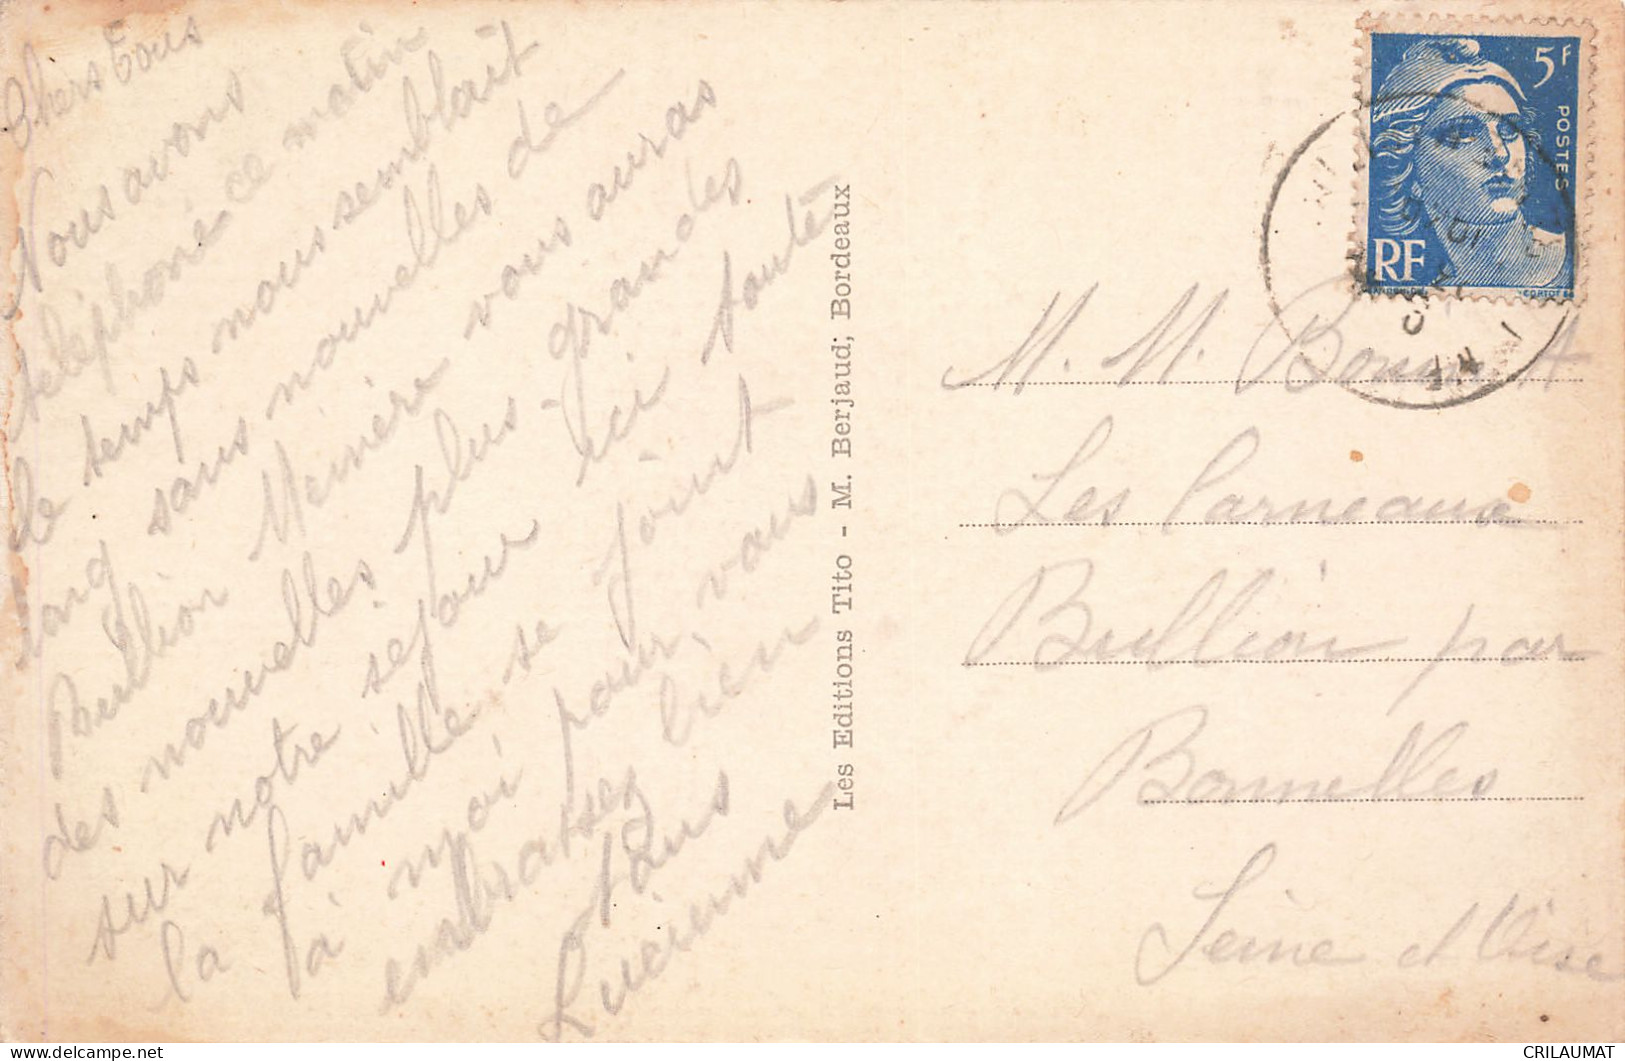 Chers tous
Nous avons
téléphoné ce matin
le temps nous semblait
long sans nouvelles de
Bullion Mémère vous auras
des nouvelles plus grandes
sur notre sejour ici toute
la famille se joint
à moi pour vous
embrasser bien
tous
Lucienne
Les Editions Tito - M. Berjaud, Bordeaux
5F
POSTES
RF
M. M. A
Les Carneaux
Bullion par
Bonnelles
Seine et Oise
CRILAUMAT